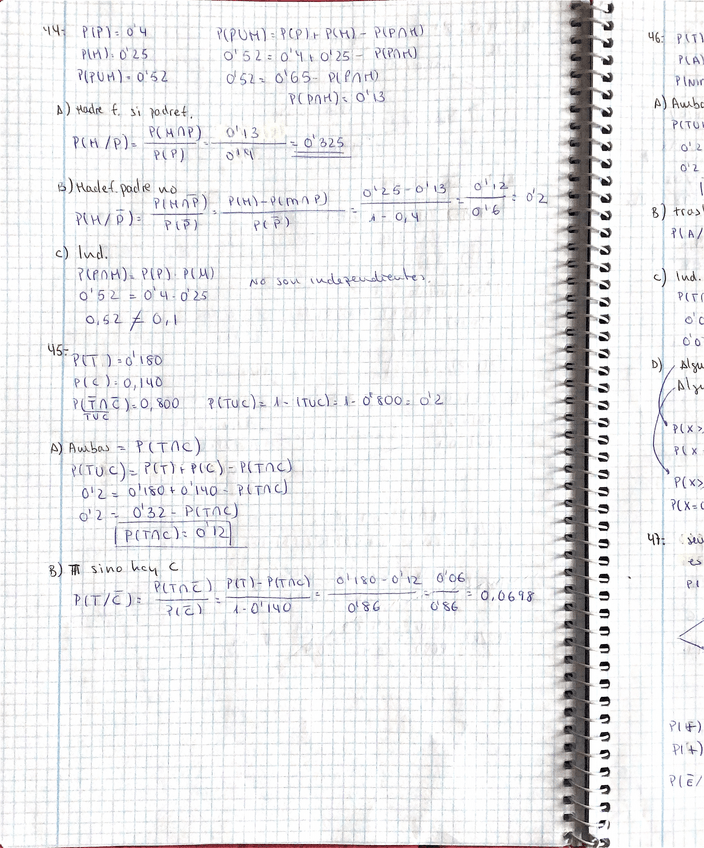 44:- P(P) = 0'4 P(PUM) = P(P) + P(M) - P(P∩M)
P(M) = 0'25 0'52 = 0'4 + 0'25 - P(P∩M)
P(PUM) = 0'52 0'52 = 0'65 - P(P∩M)
P(P∩M) = 0'13
A) Madre f. si padre f.
P(M/P) = P(M∩P) / P(P) = 0'13 / 0'4 = 0'325
B) Madre f. padre no
P(M/P̄) = P(M∩P̄) / P(P̄) = P(M) - P(M∩P) / P(P̄) = 0'25 - 0'13 / 1 - 0,4 = 0'12 / 0'6 = 0'2
C) Ind.
P(P∩M) = P(P) · P(M) No son independientes.
0'52 = 0'4 · 0'25
0,52 ≠ 0,1
45:-
P(T) = 0'180
P(C) = 0,140
P(T̄∩C̄) = 0,800 P(TUC) = 1 - (TUC) = 1 - 0'800 = 0'2
TUC
A) Ambas = P(T∩C)
P(TUC) = P(T) + P(C) - P(T∩C)
0'2 = 0'180 + 0'140 - P(T∩C)
0'2 = 0'32 - P(T∩C)
P(T∩C) = 0'12
B) T si no hay C
P(T/C̄) = P(T∩C̄) / P(C̄) = P(T) - P(T∩C) / 1 - 0'140 = 0'180 - 0'12 / 0'86 = 0'06 / 0'86 = 0,0698
46: P(T)
P(A)
A) Amba
P(TU
0'2
0'2
B) tras
P(A/
C) Ind.
P(T
0'0
D) Algu
Algu
P(X>
P(X
P(X>
P(X=0
47:
es
P(
P(+)
P(+)
P(Ē/